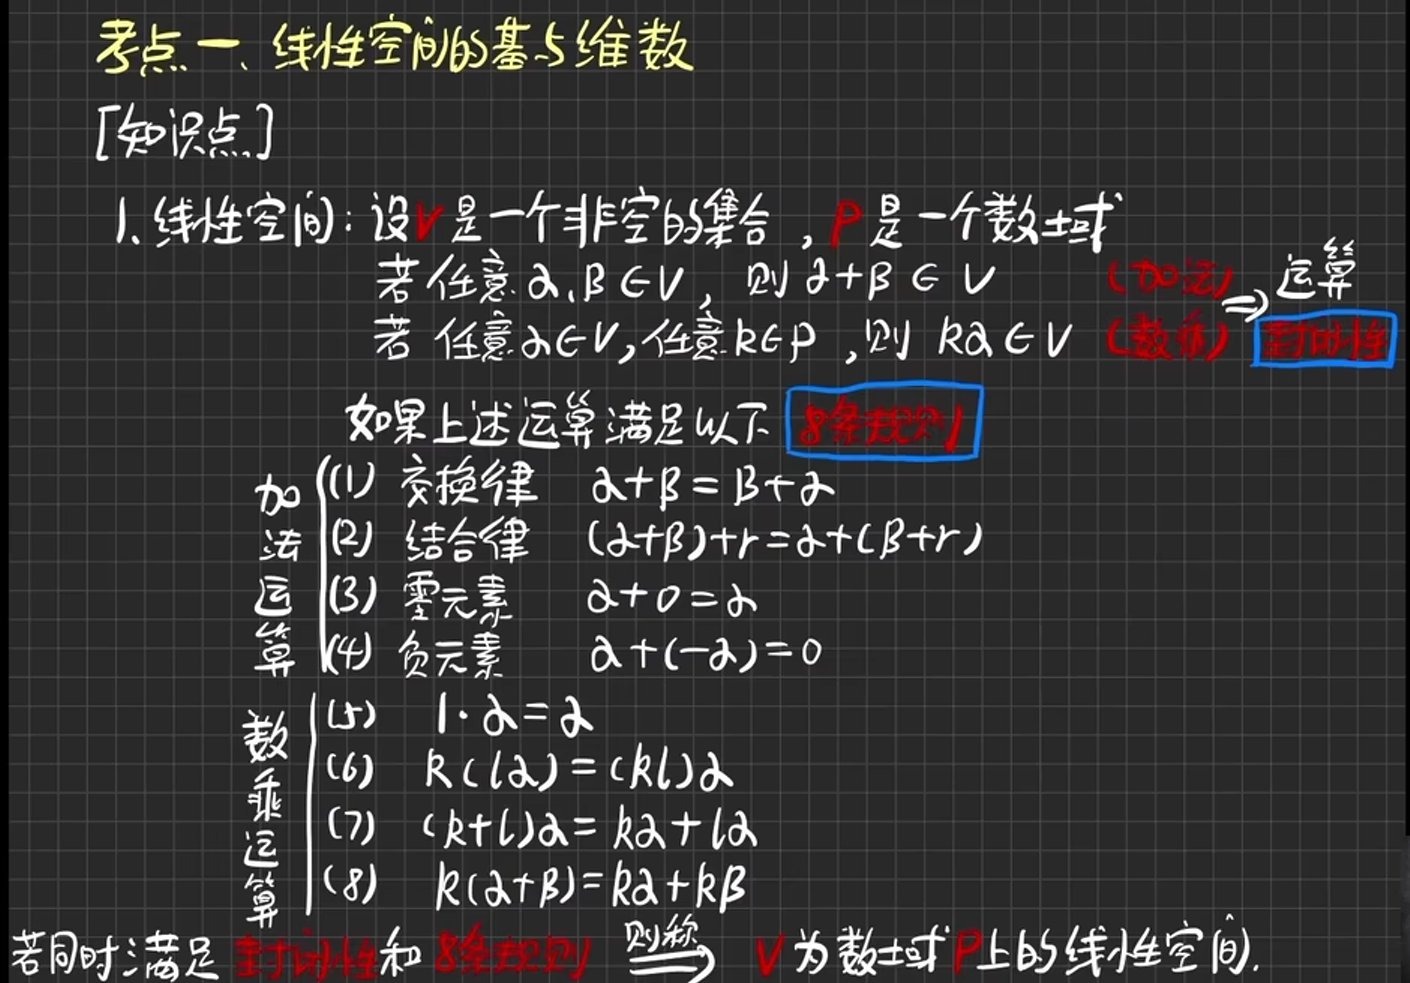 考点一、线性空间的基与维数
[知识点]
1.线性空间:设V是一个非空的集合,P是一个数域
若任意α,β∈V,则α+β∈V (加法)
若任意α∈V,任意k∈P,则kα∈V (数乘)
⇒运算
封闭性
如果上述运算满足以下8条规则
加法运算
(1) 交换律 α+β=β+α
(2) 结合律 (α+β)+r=α+(β+r)
(3) 零元素 α+0=α
(4) 负元素 α+(-α)=0
数乘运算
(5) 1·α=α
(6) k(lα)=(kl)α
(7) (k+l)α=kα+lα
(8) k(α+β)=kα+kβ
若同时满足封闭性和8条规则 则称⇒ V为数域P上的线性空间.